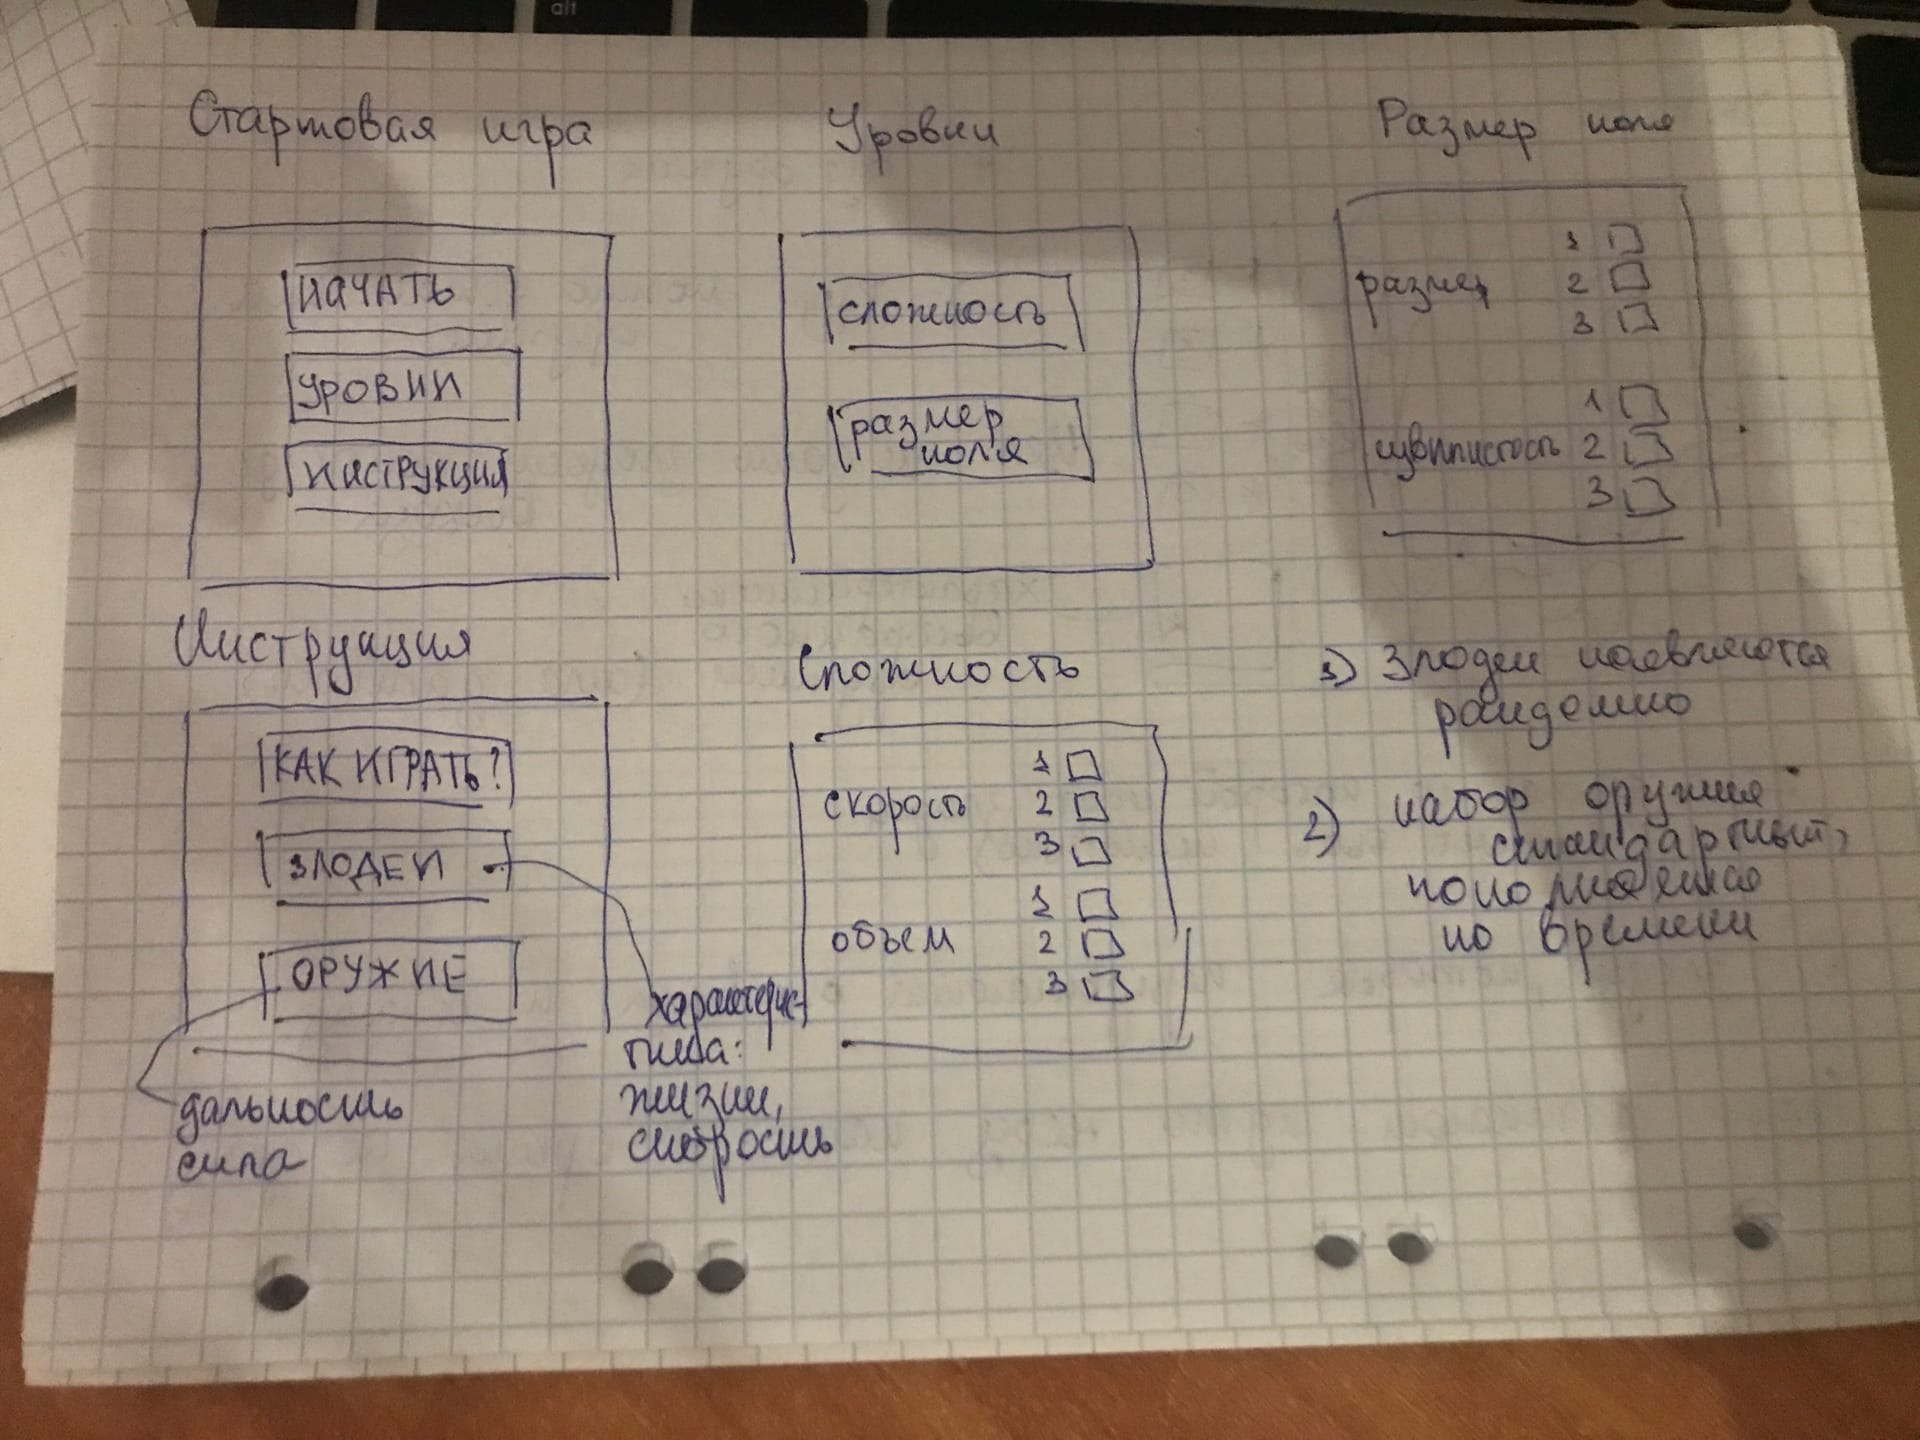 alt
Стартовая игра
НАЧАТЬ
УРОВНИ
ИНСТРУКЦИЯ
Уровни
сложность
размер
поля
Размер поля
размер
1
2
3
1
2
3
Инструкция
КАК ИГРАТЬ?
ЗЛОДЕИ
ОРУЖИЕ
дальность
сила
характерис-
тика:
жизни,
скорость
Сложность
скорость
1
2
3
объем
1
2
3
1) Злодеи появляются
рандомно
2) набор оружия
стандартный,
пополнение
по времени